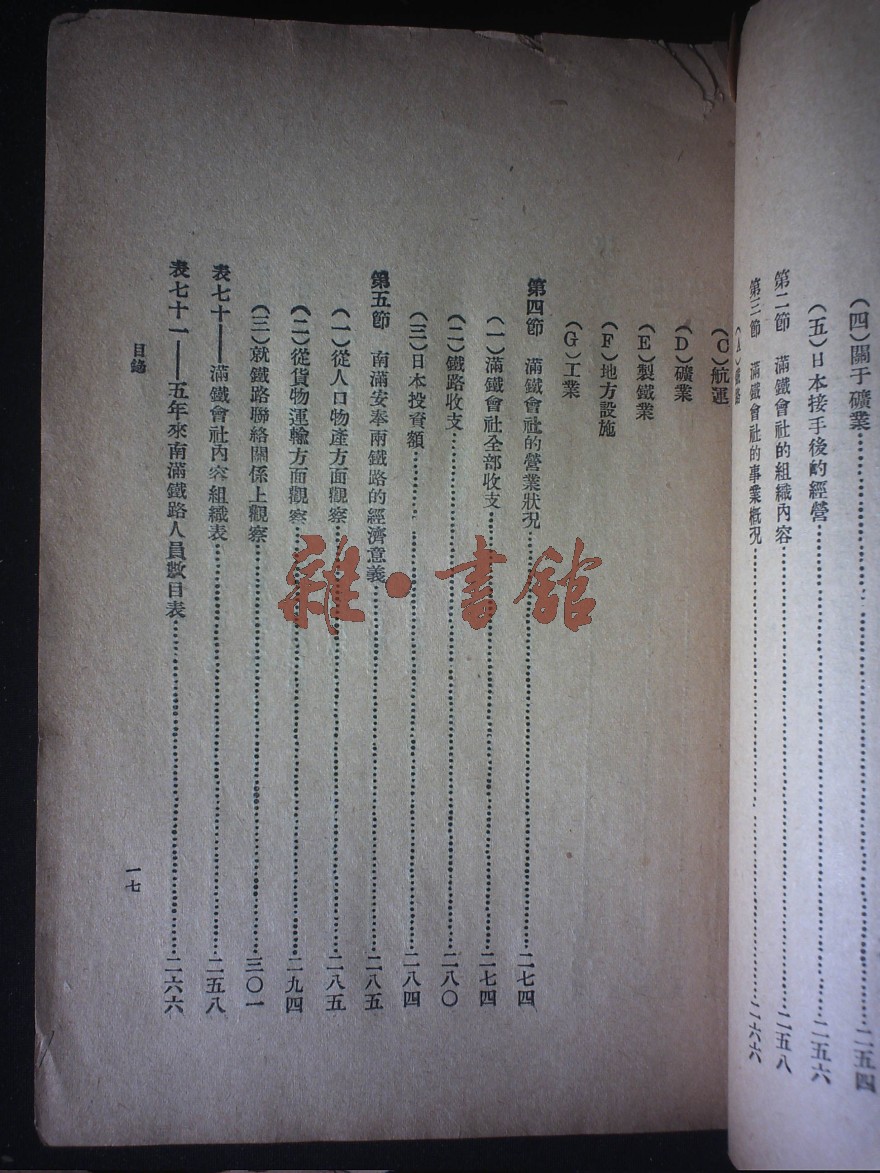 （四）關于礦業……二五四
（五）日本接手後的經營……二五六
第二節　滿鐵會社的組織內容……二五八
第三節　滿鐵會社的事業概況……二六六
（C）航運
（D）礦業
（E）製鐵業
（F）地方設施
（G）工業
第四節　滿鐵會社的營業狀況……二七四
（一）滿鐵會社全部收支……二七四
（二）鐵路收支……二八〇
（三）日本投資額……二八四
第五節　南滿安奉兩鐵路的經濟意義……二八五
（一）從人口物產方面觀察……二八五
（二）從貨物運輸方面觀察……二九四
（三）就鐵路聯絡關係上觀察……三〇一
表七十——滿鐵會社內容組織表……二五八
表七十一——五年來南滿鐵路人員數目表……二六六
目錄
一七
雜·書館